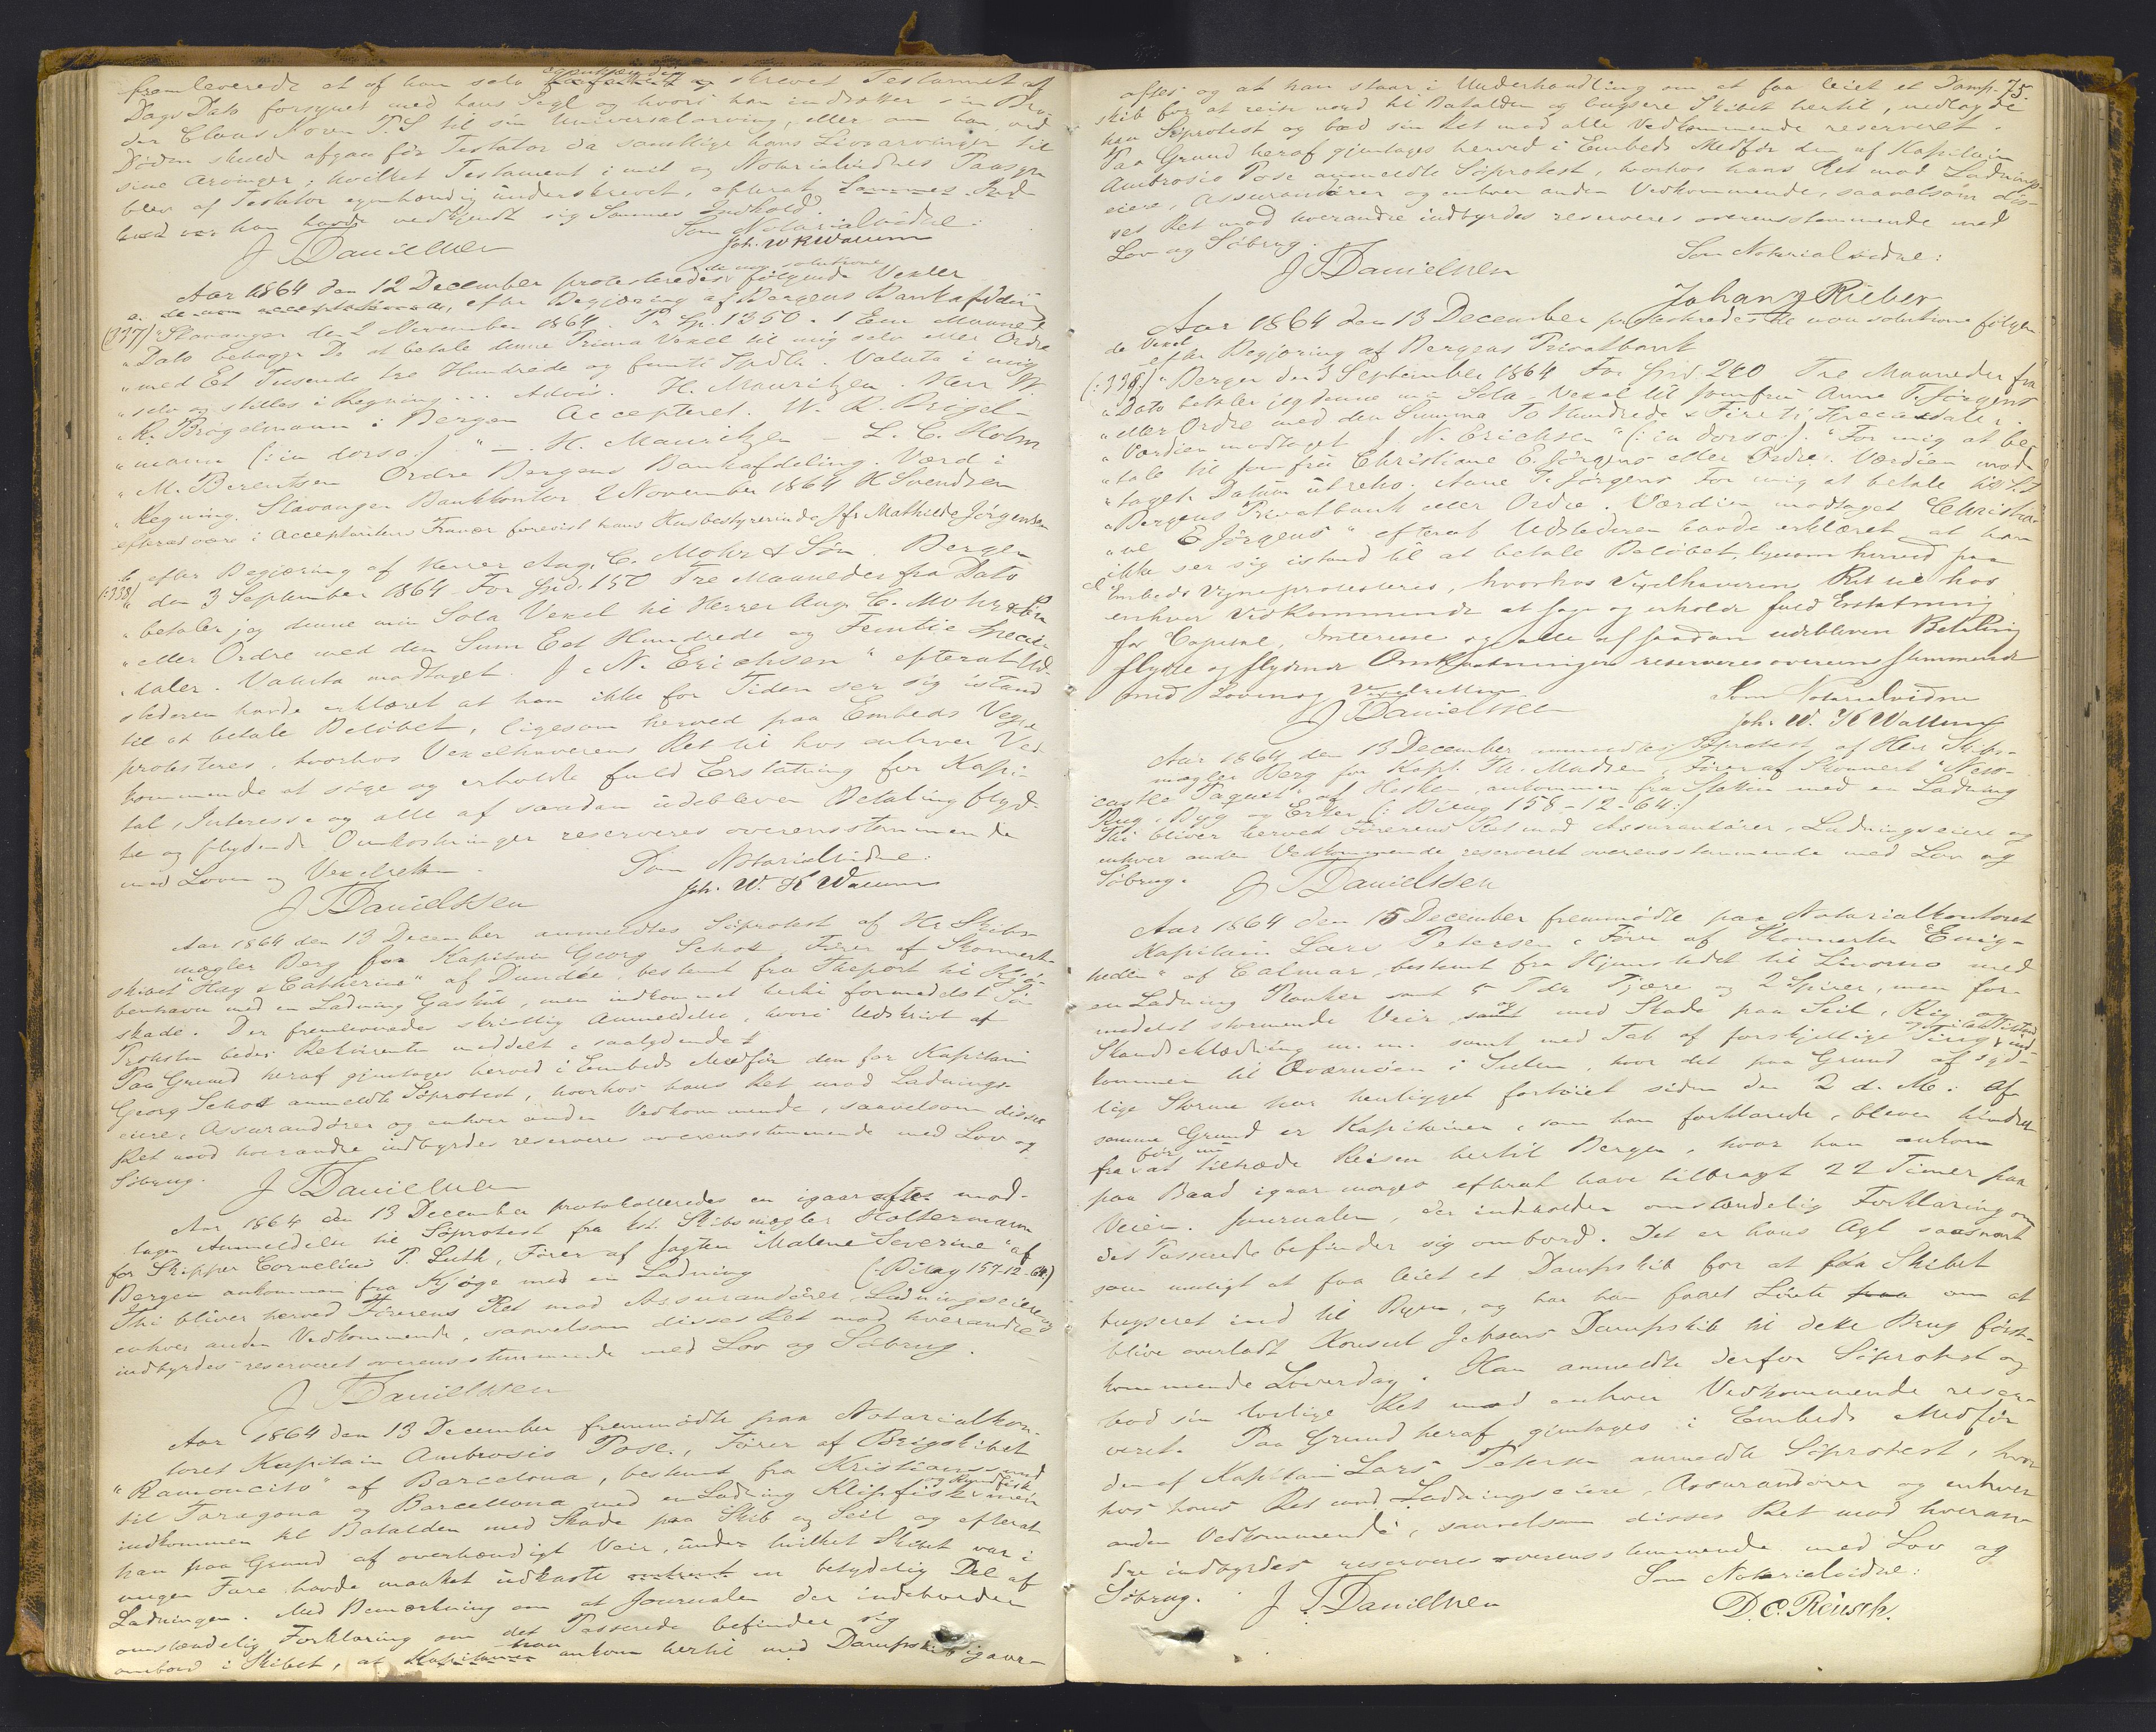 fremleverede et af ham selv egenhændig skrevet Testament af
Dags Dato forsynet med hans Segl og hvori han indsætter sin Bro-
der Claus Koren T. S til sin Universalarving, eller om han, ved
Døden skulde afgaa før Testator da samtlige hans Livsarvinger til
sine Arvinger; hvilket Testament i mit og Notarialvidnes Paasyn
blev af Testator egenhændig underskrevet, efterat
han havde vedkjendt sig Sammes Indhold.
Som Notarialvidne:
J T Danielssen Joh. W K Wallem
Aar 1864 den 12 December protesteredes de non solutione følgende Vexler
a. efter Begjæring af Bergens Bankafdeling
(337) "Stavanger den 2 November 1864. Pr Sp. 1350. 1 Een Maaned
"Dato behager De at betale denne Prima Vexel til mig selv eller Ordre
"med Et Tusende tre Hundrede og femti Spdlr. Valuta i mig
"selv og stilles i Regning ... Advis. H. Mauritzen. Herr W.
"R. Brögelmann i Bergen Accepteret. W. R. Brögel-
"mann (: in dorso :) " - H. Mauritzen - L. C. Holm
"M. Berentsen Ordre Bergens Bankafdeling. Værd i
"Regning. Stavanger Bankkontor 2 November 1864 K Svendsen
efterat være i Acceptantens Fravær forevist hans Husbestyrerinde Jfr Mathilde Jørgensen
b. efter Begjæring af Herrer Aug. C. Mohr & Søn. Bergen
(:338) "den 3 September 1864 - For Spd. 150 Tre Maaneder fra Dato
"betaler jeg denne min Sola Vexel til Herrer Aug. C. Mohr & Søn
"eller Ordre med den Sum Eet Hundrede og Femtie Specie-
"daler. Valuta modtaget. J. N. Erichsen" efterat Ud-
stederen havde erklæret at han ikke for Tiden ser sig istand
til at betale Beløbet, ligesom herved paa Embeds Vegne
protesteres, hvorhos Vexelhaverens Ret til hos enhver Ved-
kommende at søge og erholde fuld Erstatning for Kapi-
tal, Interesse og alle af saadan udebleven Betaling flyd-
te og flydende Omkostninger reserveres overensstemmende
med Loven og Vexelretten. Som Notarialvidne:
J T Danielssen Joh. W. K Wallem
Aar 1864 den 13 December anmeldtes Söprotest af Hr Skibs-
mægler Berg for Kapitain Georg Schott, Fører af Skonnert-
skibet "Hay & Catherine" af Dundee, bestemt fra Theport til Kjø-
benhavn med en Ladning Gaskul, men indkommet hertil formedelst Sö-
skade. Der fremleveredes skriftlig Anmeldelse, hvori Udskrivt af
Protesten bedes Rekvirenten meddelt, saalydende:
Paa Grund heraf gjentages herved i Embeds Medför den for Kapitain
Georg Schott anmeldte Söprotest, hvorhos hans Ret mod Ladnings-
eiere, Assurandører og enhver anden Vedkommende, saavelsom disses
Ret mod hverandre indbyrdes reserveres overensstemmende med Lov og
Söbrug. J T Danielssen
Aar 1864 den 13 December protokolleredes en igaaraftes mod-
tagen Anmeldelse til Söprotest fra kst. Skibsmægler Holtermann
for Skipper Cornelius P. Luth, Fører af Jagten "Malene Severine" af
Bergen ankommen fra Kjøge med en Ladning (: Bilag 157-12-64)
Thi bliver herved Førerens Ret mod Assurandører Ladningseiere og
enhver anden Vedkommende, saavelsom disses Ret mod hverandre
indbyrdes reserveret overensstemmende med Lov og Söbrug.
J T Danielssen
Aar 1864 den 13 December fremmödte paa Notarialkon-
toret Kapitain Ambrosio Pose, Fører af Brigskibet
"Ramoncito" af Barcelona, bestemt fra Kristianssund
til Taragona og Barcellona med en Ladning Klipfisk og Rundfisk men
indkommen til Batalden med Skade paa Skib og Seil og efterat
han paa Grund af overhændigt Veir, under hvilket Skibet var i
megen Fare havde maattet udkaste en betydelig Del af
Ladningen. Med Bemærkning om at Journalen der indeholder
omstændelig Forklaring om det Passerede befinder sig
ombord i Skibet, at han ankom hertil med Dampskib igaar-
75.
aftes og at han staar i Underhandling om at faa leiet et Damp-
skib for at reise nord til Batalden og bugsere Skibet hertil, nedlagde
han Söprotest og bad sin Ret mod alle Vedkommende reserveret.
Paa Grund heraf gjentages herved i Embeds Medför den af Kapitain
Ambrosio Pose anmeldte Söprotest, hvorhos hans Ret mod Ladnings-
eiere, Assurandører og enhver anden Vedkommende, saavelsom dis-
ses Ret mod hverandre indbyrdes reserveres overensstemmende med
Lov og Söbrug. Som Notarialvidne:
J T Danielssen Johan J Rieber
Aar 1864 den 13 December protesteredes de non solutione følgen-
de Vexel
efter Begjæring af Bergens Privatbank
(:339:) "Bergen den 3 September 1864 For Spd. 240 Tre Maaneder fra
"Dato betaler jeg denne min Sola-Vexel til Jomfru Anne F. Jørgens
"eller Ordre med den Summa To Hundrede & Fireti Speciedaler.
"Værdien modtaget J. N. Erichsen" (: in dorso :) "For mig at be-
"tale til Jomfru Christiane E. Jørgens eller Ordre. Værdien mod-
"taget. Datum ut retro. Anne F. Jørgens For mig at betale til
"Bergens Privatbank eller Ordre. Værdien modtaget Christia-
"ne E Jørgens" efterat Udstederen havde erklæret at han
ikke ser sig istand til at betale Beløbet, ligesom herved paa
Embeds Vegne protesteres, hvorhos Vexelhaverens Ret til hos
enhver Vedkommende at søge og erholde fuld Erstatning
for Capital, Interesse og alle af saadan udebleven Betaling
flydte og flydende Omkostninger reserveres overensstemmende
med Loven og Vexelretten. Som Notarialvidne
J T Danielssen Joh. W. K Wallem
Aar 1864 den 13 December anmeldtes Söprotest af Herr Skibs-
mægler Berg for Kapt. Th. Madsen, Fører af Skonnert "New-
castle Paquet" af ankommen fra Stettin med en Ladning
Rug, Byg og Erter (: Bilag 158-12-64:)
Thi bliver herved Førerens Ret mod Assurandører, Ladningseiere og
enhver anden Vedkommende reserveret overensstemmende med Lov og
Söbrug. J T Danielssen
Aar 1864 den 15 December fremmödte paa Notarialkontoret
Kapitain Lars Petersen, Fører af Skonnerten "Enig-
heden" af Calmar, bestemt fra Hjemstedet til Livorno med
en Ladning Planker samt 5 Tdr Tjære og 2 Spirer, men for-
medelst stormende Veir og med Skade paa Seil, Rig og
Skandseklædning m. m. samt med Tab af forskjellige Ting ind-
kommen til Qværnöen i Sulen, hvor det paa Grund af syd-
lige Storme har henligget fortöiet siden den 2 d. M: Af
samme Grund er Kapitainen, som han forklarede, bleven hindret
fra før nu at tiltræde Reisen hertil Bergen, hvor han ankom
paa Baad igaar morges efterat have tilbragt 22 Timer paa
Veien. Journalen, der indeholder omstændelig Forklaring om
det Passerede befinder sig ombord. Det er hans Agt saasnart
som muligt at faa leiet et Dampskib for at faa Skibet
bugseret ind til Byen, og har han faaet Löfte om at
blive overladt Konsul Jebsens Dampskib til dette Brug först-
kommende Löverdag. Han anmeldte derfor Söprotest og
bad sin lovlige Ret mod enhver Vedkommende reser-
veret. Paa Grund heraf gjentages i Embeds Medför
den af Kapitain Lars Petersen anmeldte Söprotest, hvor-
hos hans Ret mod Ladningseiere, Assurandører og enhver
anden Vedkommende, saavelsom disses Ret mod hveran-
dre indbyrdes reserveres overensstemmende med Lov og
Söbrug. Som Notarialvidne:
J. T. Danielssen D. C. Reusch.